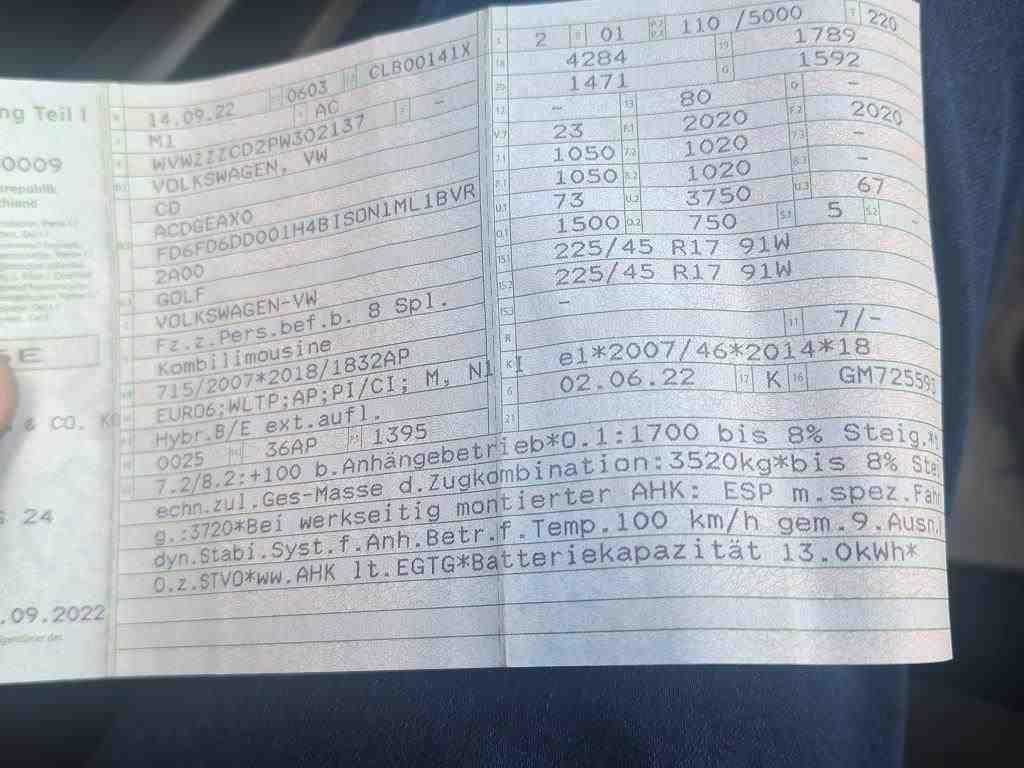 ng Teil I
0009
republik
14.09.22 0603 CLB00141X
M1 AC -
WVWZZZCDZPW302137
VOLKSWAGEN, VW
CD
ACDGEAX0
FD6FD6DD001H4BISON1ML1BVR
2A00
GOLF
VOLKSWAGEN-VW
Fz.z.Pers.bef.b. 8 Spl.
Kombilimousine
715/2007*2018/1832AP
EURO6;WLTP;AP;PI/CI; M, N1 I
Hybr.B/E ext.aufl.
0025 36AP 1395
2 01 110 /5000 220
4284 1789
1471 1592
- 80 -
23 2020 2020
1050 1020 -
1050 1020 -
73 3750 67
1500 750 5 -
225/45 R17 91W
225/45 R17 91W
-
7/-
e1*2007/46*2014*18
02.06.22 K
7.2/8.2:+100 b.Anhängebetrieb*0.1:1700 bis 8% Steig.*
echn.zul.Ges-Masse d.Zugkombination:3520kg*bis 8% Stei
g.:3720*Bei werkseitig montierter AHK: ESP m.spez.Fah
dyn.Stabi.Syst.f.Anh.Betr.f.Temp.100 km/h gem.9.Ausn.
O.z.STVO*ww.AHK lt.EGTG*Batteriekapazität 13.0kWh*
E
& CO. K
24
.09.2022